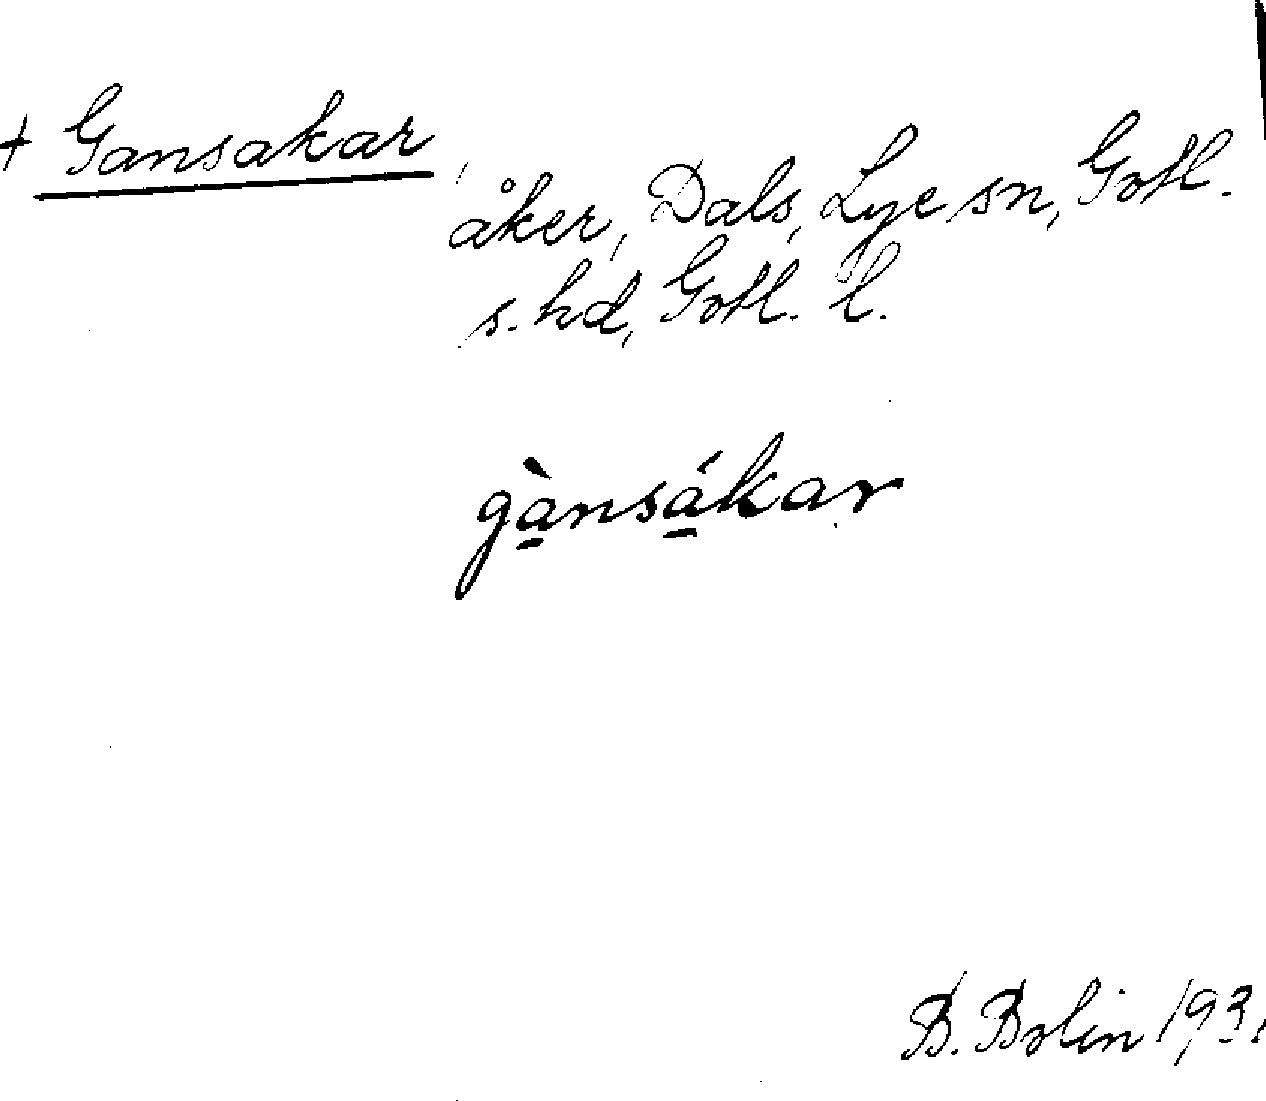 + Gansakar
åker, Dals, Lye sn, Gotl.
s. hd, Gotl. l.
gànsákar
B. Bolin 193